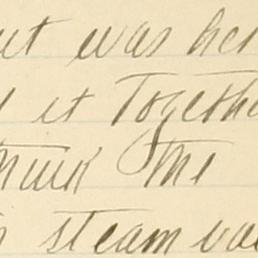 ut was her
it Togethe
think the
steam va